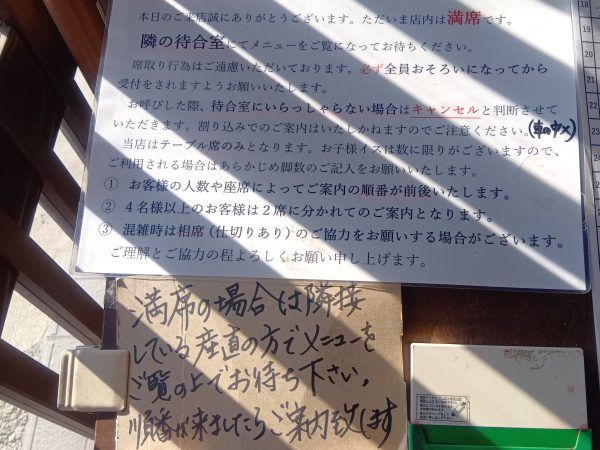 本日のご来店誠にありがとうございます。ただいま店内は満席です。
隣の待合室にてメニューをご覧になってお待ちください。
席取り行為はご遠慮いただいております。必ず全員おそろいになってから
受付をされますようお願いいたします。
お呼びした際、待合室にいらっしゃらない場合はキャンセルと判断させて
いただきます。割り込みでのご案内はいたしかねますのでご注意ください。(車の中×)
当店はテーブル席のみとなります。お子様イスは数に限りがございますので、
ご利用される場合はあらかじめ脚数のご記入をお願いいたします。
① お客様の人数や座席によってご案内の順番が前後いたします。
② 4名様以上のお客様は2席に分かれてのご案内となります。
③ 混雑時は相席(仕切りあり)のご協力をお願いする場合がございます。
ご理解とご協力の程よろしくお願い申し上げます。
満席の場合は隣接
している産直の方でメニューを
ご覧の上でお待ち下さい。
順番が来ましたらご案内致します
18
19
20
21
22
23
24